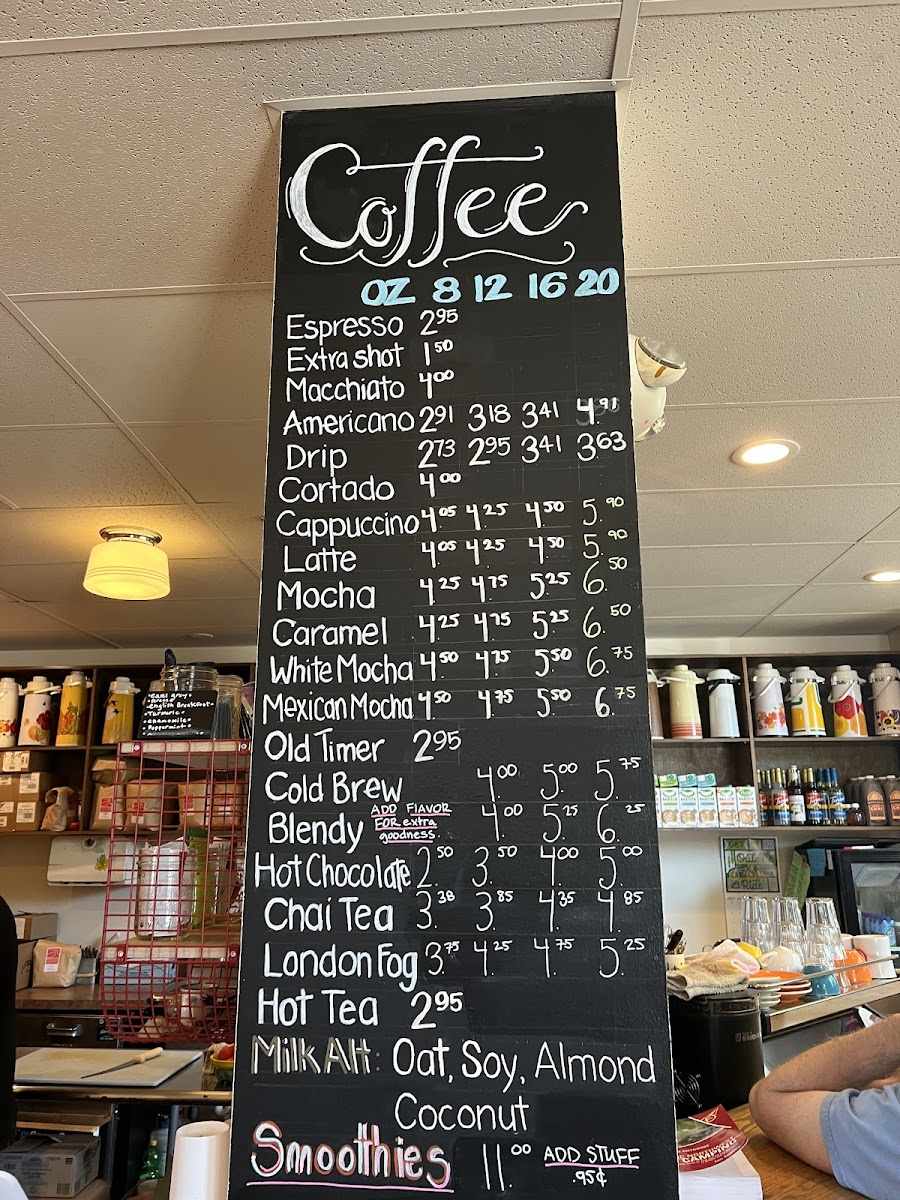 Coffee
OZ 8 12 16 20
Espresso 2.95
Extra shot 1.50
Macchiato 4.00
Americano 2.91 3.18 3.41 4.91
Drip 2.73 2.95 3.41 3.63
Cortado 4.00
Cappuccino 4.05 4.25 4.50 5.90
Latte 4.05 4.25 4.50 5.90
Mocha 4.25 4.75 5.25 6.50
Caramel 4.25 4.75 5.25 6.50
White Mocha 4.50 4.75 5.50 6.75
Mexican Mocha 4.50 4.75 5.50 6.75
Old Timer 2.95
Cold Brew 4.00 5.00 5.75
Blendy ADD FLAVOR FOR extra goodness. 4.00 5.25 6.25
Hot Chocolate 2.50 3.50 4.00 5.00
Chai Tea 3.38 3.85 4.35 4.85
London Fog 3.75 4.25 4.75 5.25
Hot Tea 2.95
Milk Alt: Oat, Soy, Almond
Coconut
Smoothies 11.00 ADD STUFF .95¢
Earl grey
English Breakfast
Turmeric
Chamomile
Peppermint
CAMPING